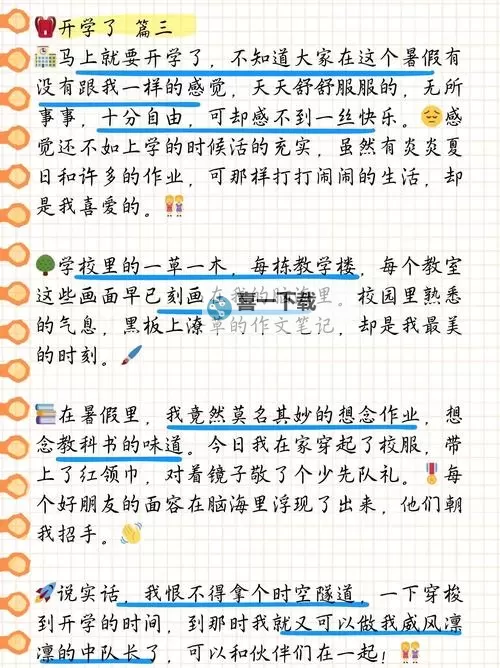 开学了 篇三
马上就要开学了，不知道大家在这个暑假有
没有跟我一样的感觉，天天舒舒服服的，无所
事事，十分自由，可却感不到一丝快乐。感
觉还不如上学的时候活的充实，虽然有炎炎夏
日和许多的作业，可那样打打闹闹的生活，却
是我喜爱的。
学校里的一草一木，每栋教学楼，每个教室
这些画面早已刻画在我的脑海里。校园里熟悉
喜一下载
的气息，黑板上潦草的作文笔记，却是我最美
的时刻。
在暑假里，我竟然莫名其妙的想念作业，想
念教科书的味道。今日我在家穿起了校服，带
上了红领巾，对着镜子敬了个少先队礼。每
个好朋友的面容在脑海里浮现了出来，他们朝
我招手。
说实话，我恨不得拿个时空隧道，一下穿梭
到开学的时间，到那时我就又可以做我威风凛
凛的中队长了，可以和伙伴们在一起！